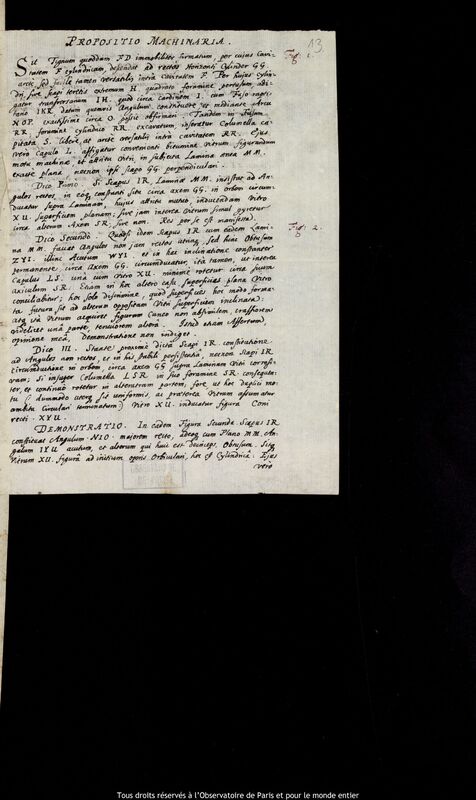 13.
PROPOSITIO MACHINARIA.
Sit Tignum quoddam FD immobiliter firmatum, per cuius cavi-
Fig. 1.
tatem F cylindricam dependet ad rectos Horizonti Cylinder GG.
arcte, sed facile tamen versatilis intra cavitatem F. Per hujus Cylin-
dri, sive Scapi teretis extremum H, quadrato foramine pertusum, adi-
gatur transversarium IH, quod circa cardinem I. cum Fuso
IKR datum quemvis Angulum constituere, et mediante Arcu
NOP. exactissime circa O. possit obfirmari. Tandem in Fusum
RR, foramine cylindrico RR. excavatum, inseratur Columella ca-
pitata S. libere, at arcte versatilis intra cavitatem RR. Ejus
vero Capulo L affigatur convenienti bitumine vitrum figurandum
motu machinae, et attritu Vitri, in subjecta Lamina aenea MM.
exacte plana, necnon ipsi Scapo GG perpendiculari.
Dico Primo. Si Scapus IR, Laminae MM. insistat ad An-
gulos rectos, in eoque constanti situ circa axem GG. in orbem circum-
ducatur supra Laminam, hujus attritu mutuo, inducendam Vitro
XU. superficiem planam; sive jam interea vitrum simul gyretur
circa alterum Axem SR, sive non. Res per se est manifesta.
Dico Secundo. Quodsi idem Scapus IR cum eadem Lami-
Fig. 2.
na MM. faciat Angulos non jam rectos utrinque, sed hinc Obtusum
ZYI. illinc Acutum WYI et in hac inclinatione constanter
permanens, circa axem GG. circumducatur, ita tamen, ut interea
Capulus LS. una cum Vitro XU. minime rotetur circa suum
axiculum SR. Etiam in hoc altero casu superficies plana Vitro
conciliabitur; hoc solo discrimine, quod superficies hoc modo forma-
ta futura sit ad alteram oppositam Vitri superficiem inclinata:
atque ita Vitrum acquiret figuram Cuneo non absimilem, crassiorem
videlicet una parte, tenuiorem altera. Istud etiam Assertum,
opinione mea, Demonstratione non indiget.
Dico III. Stante proxime dicta Scapi IR. constitutione
ad Angulos non rectos, et in his stabili persistentia, necnon Scapi IR
circumductione in orbem, circa axem GG supra Laminam Vitri
; Si insuper Columella LSR. in suo foramine SR.
, et continuo rotetur in alterutram partem, fore, ut hoc duplici mo-
tu (dummodo uterque sit uniformis, ac praeterea vitrum assumatur
ambitu circulari terminatum) Vitro XU. inducatur figura Coni
recti XYU.
DEMONSTRATIO. In eadem Figura Secunda Scapus IR
constituat Angulum NIO. majorem recto, adeoque cum Plano MM. An-
gulum IYU acutum, et alterum qui huic est deinceps, Obtusum. Sitque
Vitrum XU. figurae ad initium operis Orbiculari, hoc est Cylindrica. Ejus
vero
Tous droits réservés à l'Observatoire de Paris et pour le monde entier